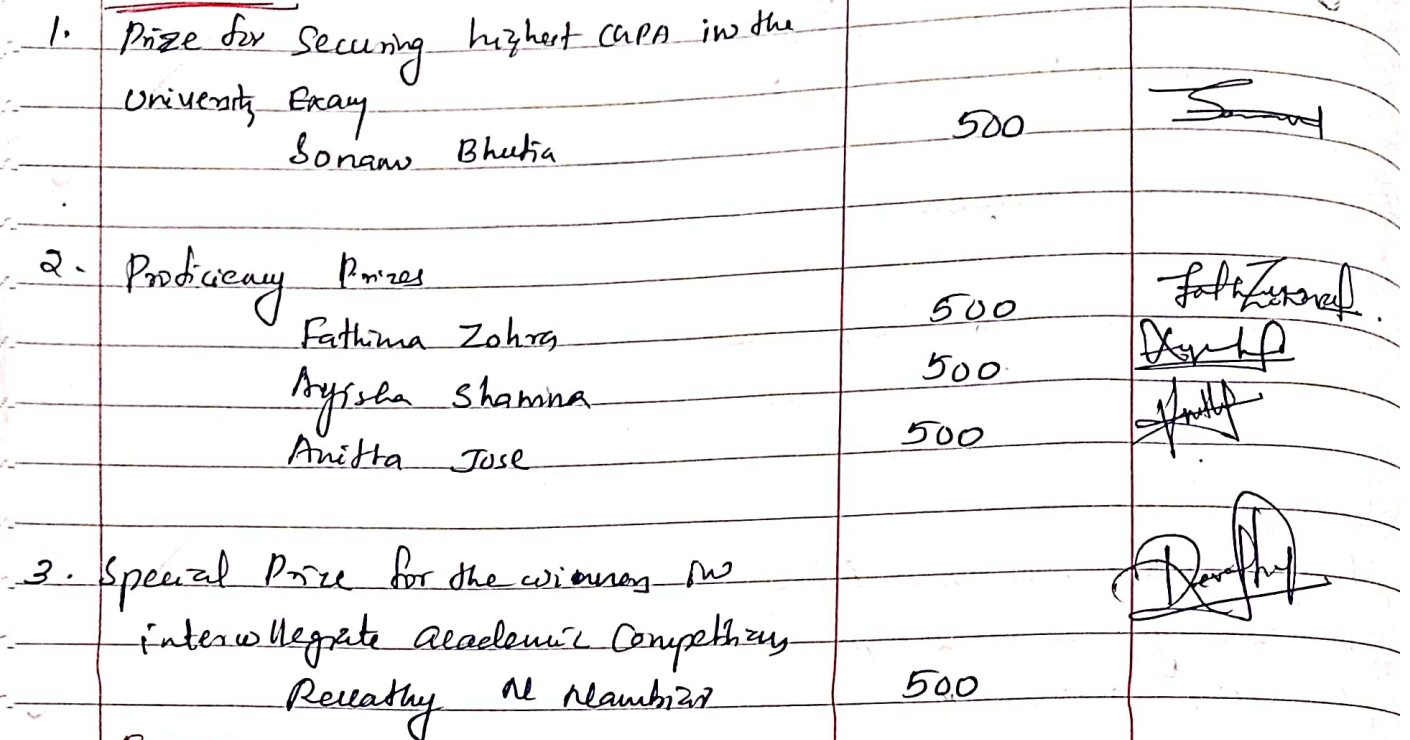 1. Prize for Securing highest CGPA in the
University Exam
500
Sonam Bhutia
2. Proficiency Prizes
500
Fathima Zohra
500
Ayisha Shamna
500
Anitta Jose
3. Special Prize for the winners in
intercollegiate academic Competitions
Revathy M Nambiar 500